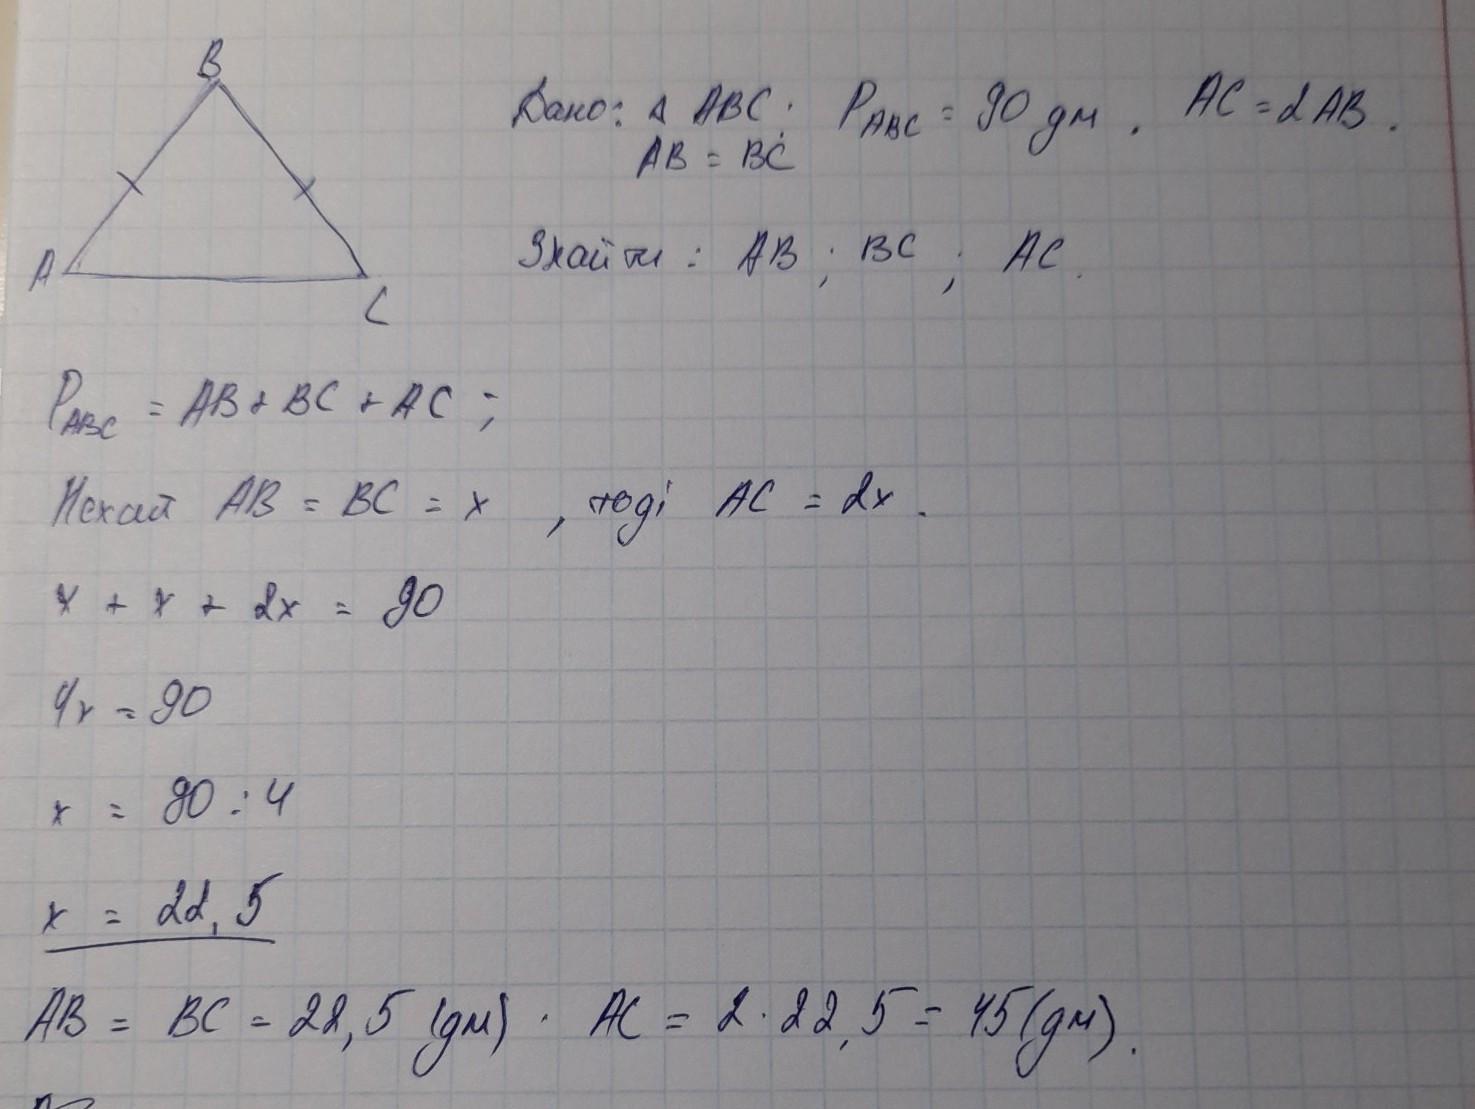 B
A
C
Дано: Δ ABC; P_ABC = 90 дм. AC = 2AB.
AB = BC
Знайти: AB; BC; AC.
P_ABC = AB + BC + AC;
Нехай AB = BC = x, тоді AC = 2x.
x + x + 2x = 90
4x = 90
x = 90 : 4
x = 22,5
AB = BC = 22,5 (дм). AC = 2 · 22,5 = 45 (дм).